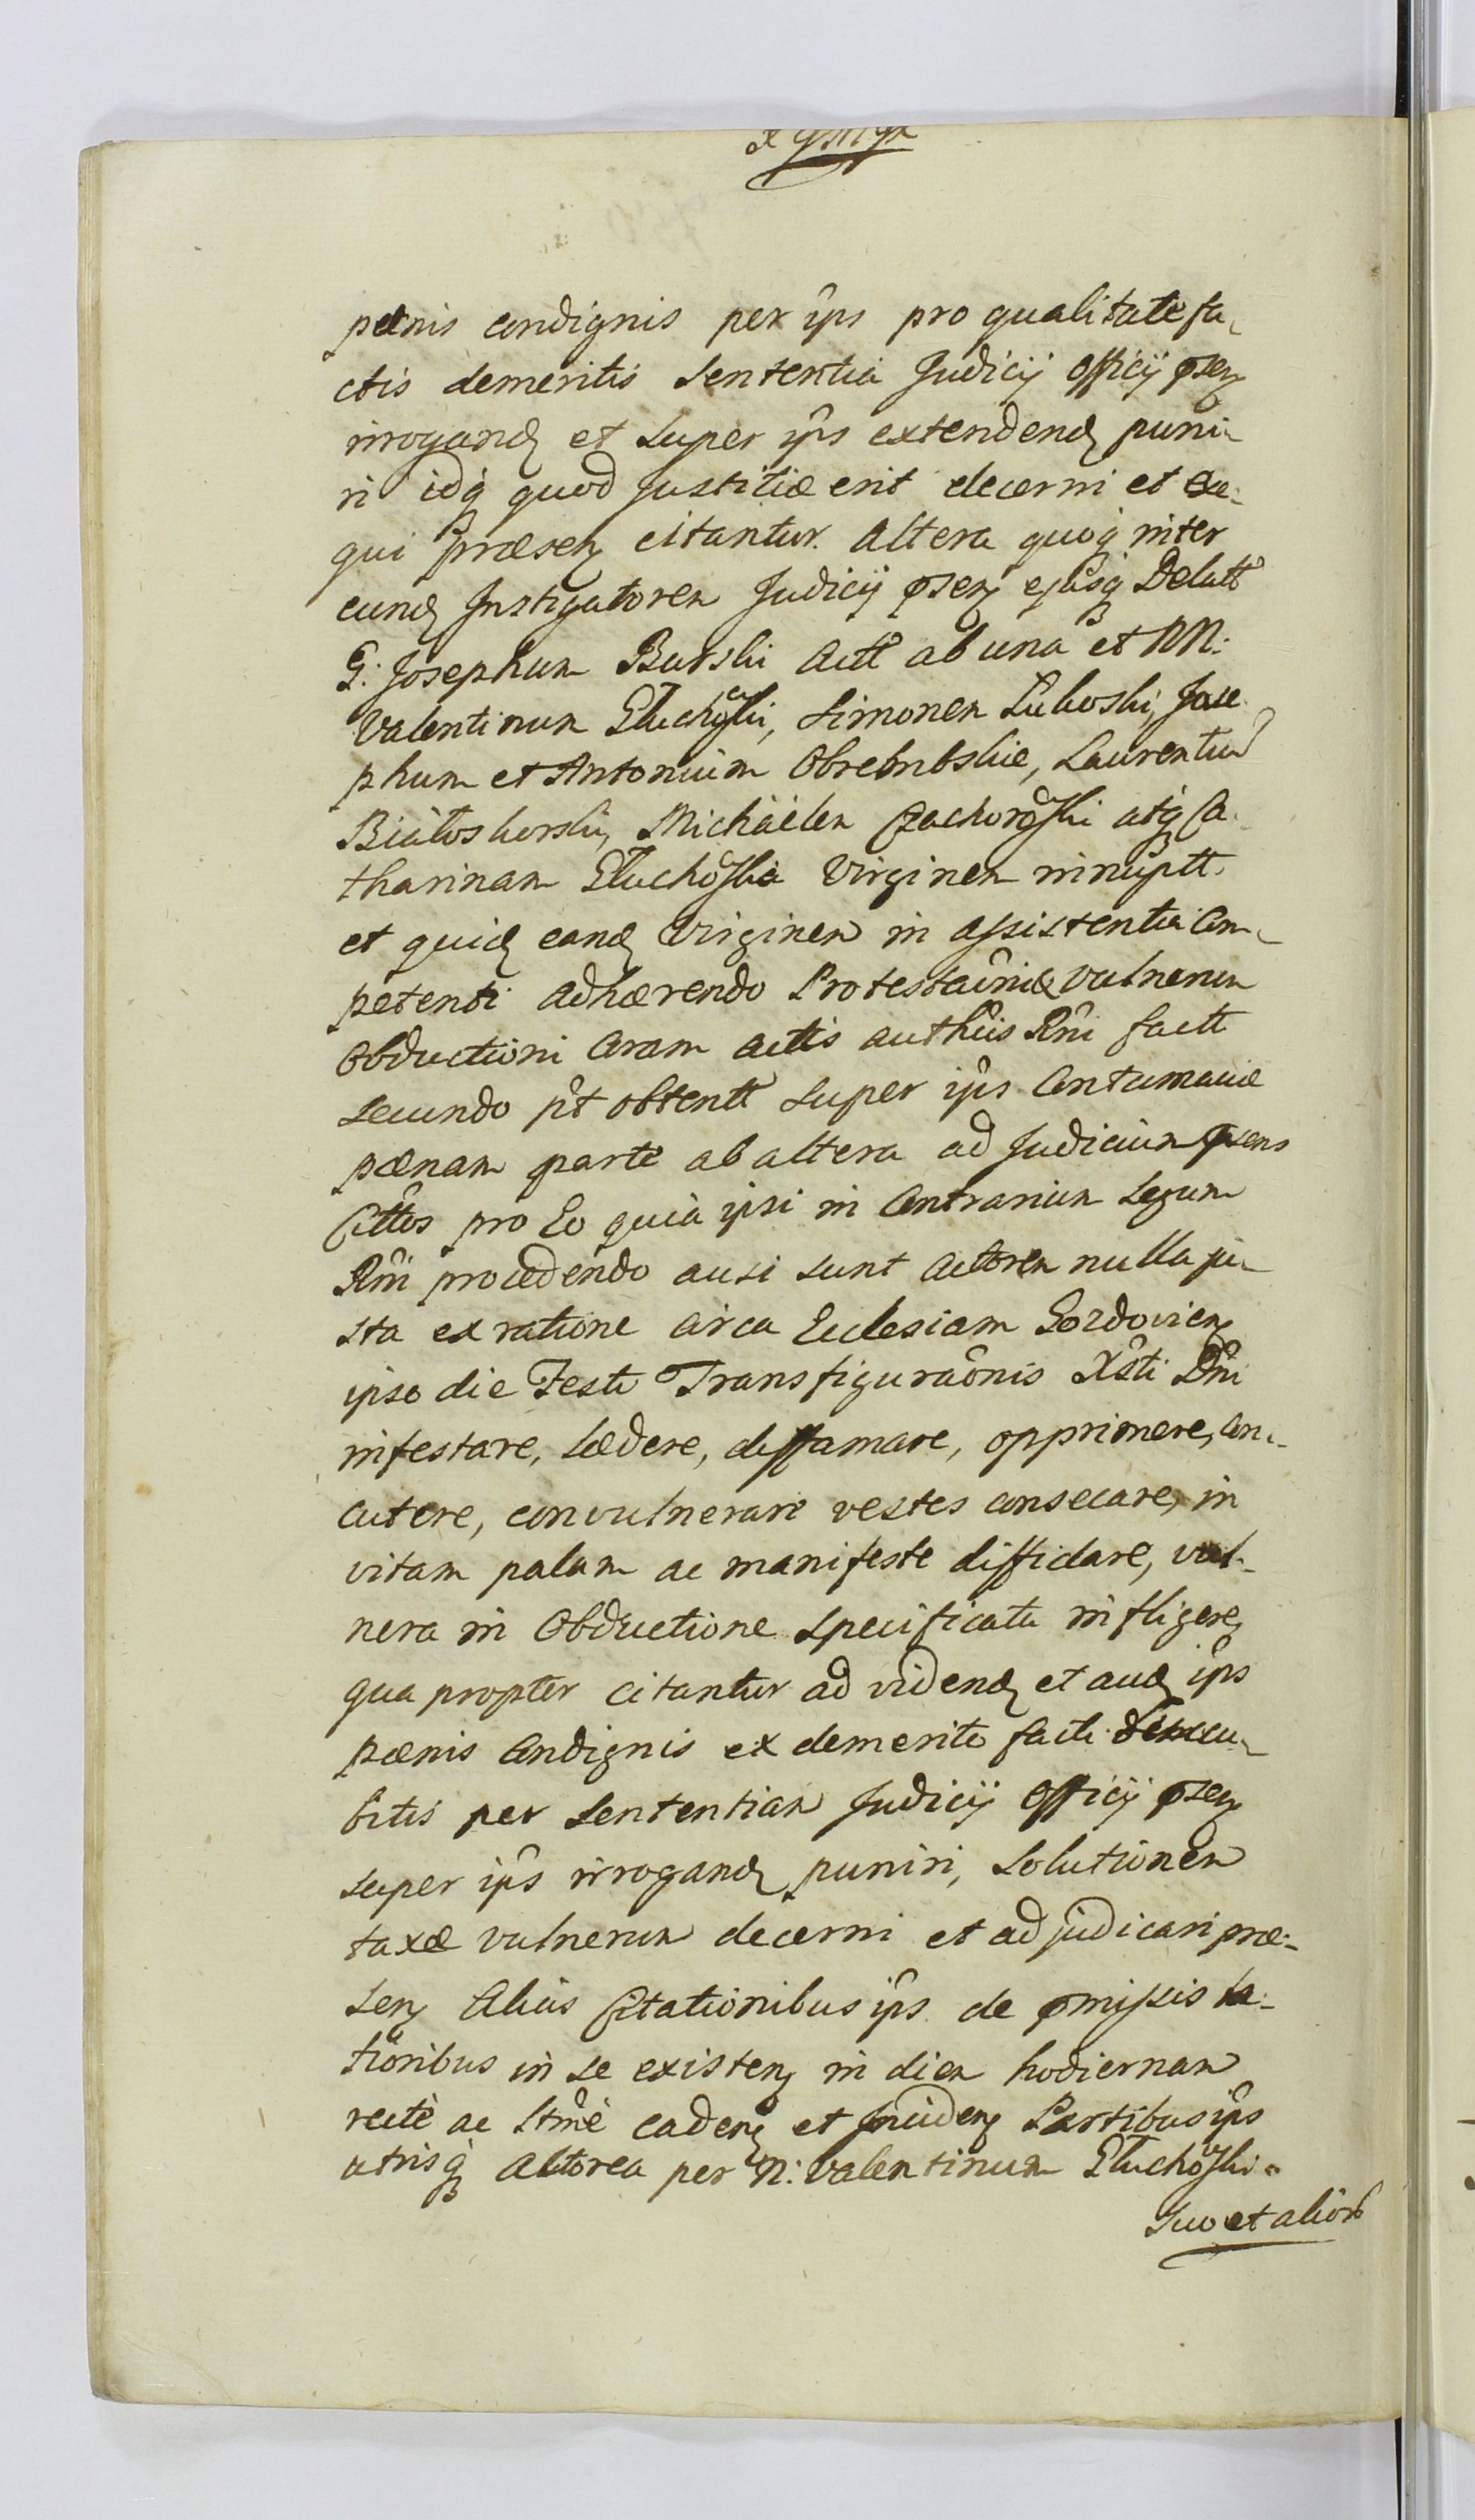 pænis condignis per ip̂s pro qualitate fa-
ctis demeritis Sententia Judicij Officij pseñ
irrogand et super ip̂s extendend puni-
ri idq quod Justitiæ erit decerni et exe-
qui præsen citantur. Altera quoq inter
eund Instigatorem Judicij psen ejusq Delatt
G: Josephum Burski Actt ab una et NN:
Valentinum Głuchowski, Simonem Łukoski, Jose-
phum et Antonium Obrembskie, Laurentium
Białoskorski, Michäelem Czachorowski atq Ca-
tharinam Głuchowska Virginem innuptt.
et quid eand Virginem in assistentia Com-
petenti adhærendo Protestaôni & vulnerum
Obductioni Coram actis authûis Rñi factt
secundo p̂t obtentt super ip̂s Contumaciæ
pænam parte ab altera ad Judicium psens
Cittos pro Eo quia ipsi in Contrarium Legum
Rñi procedendo ausi sunt Actorem nulla ju-
sta ex ratione circa Ecclesiam Gozdovien
ipso die Festi Transfiguraônis Xsti Dñi
infestare, lædere, diffamare, opprimere, con-
cutere, convulnerare vestes consecare, in
vitam palam ac manifeste diffidare, vul-
nera in Obductione specificata infligere,
qua propter citantur ad videnđ et auđ ip̂s
pænis Condignis ex demerito facti
bitis per Sententiam Judicij Officij psen
super ip̂s irrogand puniri, Solutionem
taxæ vulnerum decerni et adjudicari præ-
sen Aliis Citationibus ip̂s de pmissis la-
tioribus in se existen in diem hodiernam
recte ac Itmè caden et Inciden Partibus ip̂s
utrisq Actorea per N: Valentinum Głuchowski
Suo et alior